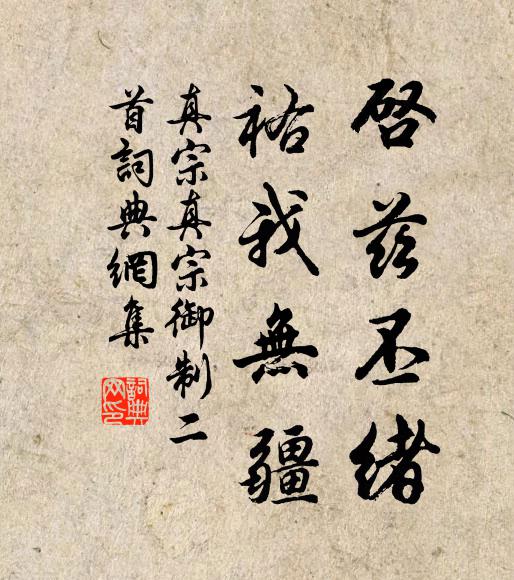 啓茲丕緒
祐我無疆
真宗真宗御制二
首詞典網集
詞典
网印